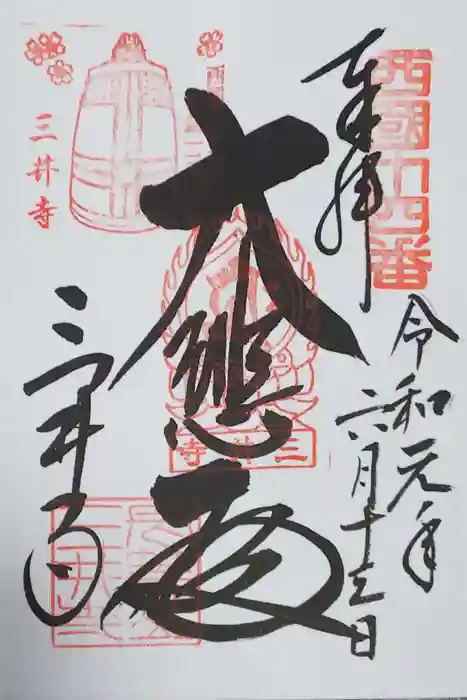 奉拝
西國十四番
令和元年
六月十三日
大悲殿
三井寺
三井寺
三井寺